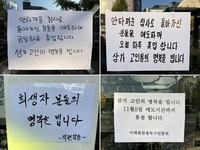 안타까운 참사로
돌아가신 분들을 애도하며
금일하루 휴업합니다
안타까운 참사로 돌아가신
분들을 애도하며
오늘 하루 휴업 합니다
삼가 고인의 명복을 빕니다
희생자 분들의
명복을 빕니다
삼가 고인의 명복을 빕니다.
11월5일 애도기간까지
휴점 합니다.
이태원관광특구연합회